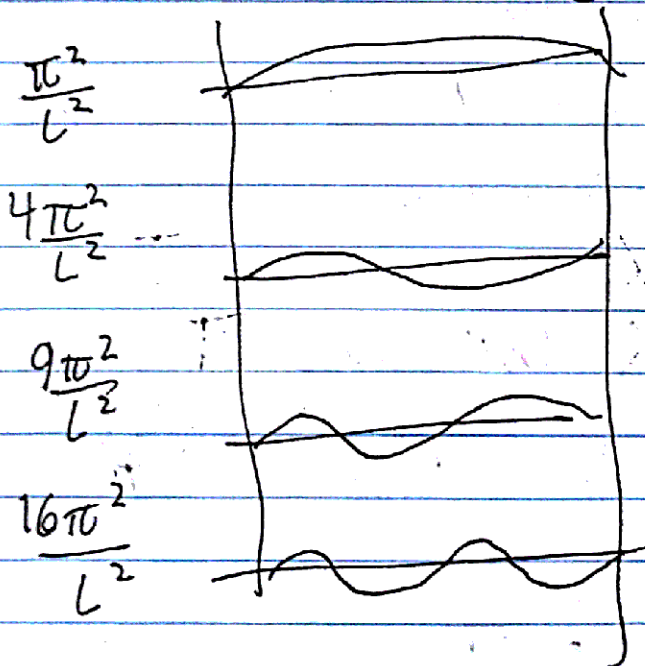 π²/L²
4π²/L²
9π²/L²
16π²/L²